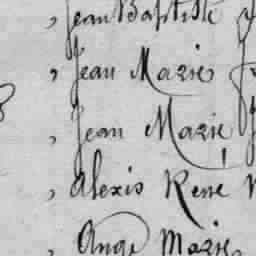 , Jean Baptiste
, Jean Marie
, Jean Marie
, Alexis Rene
, Ange Marie